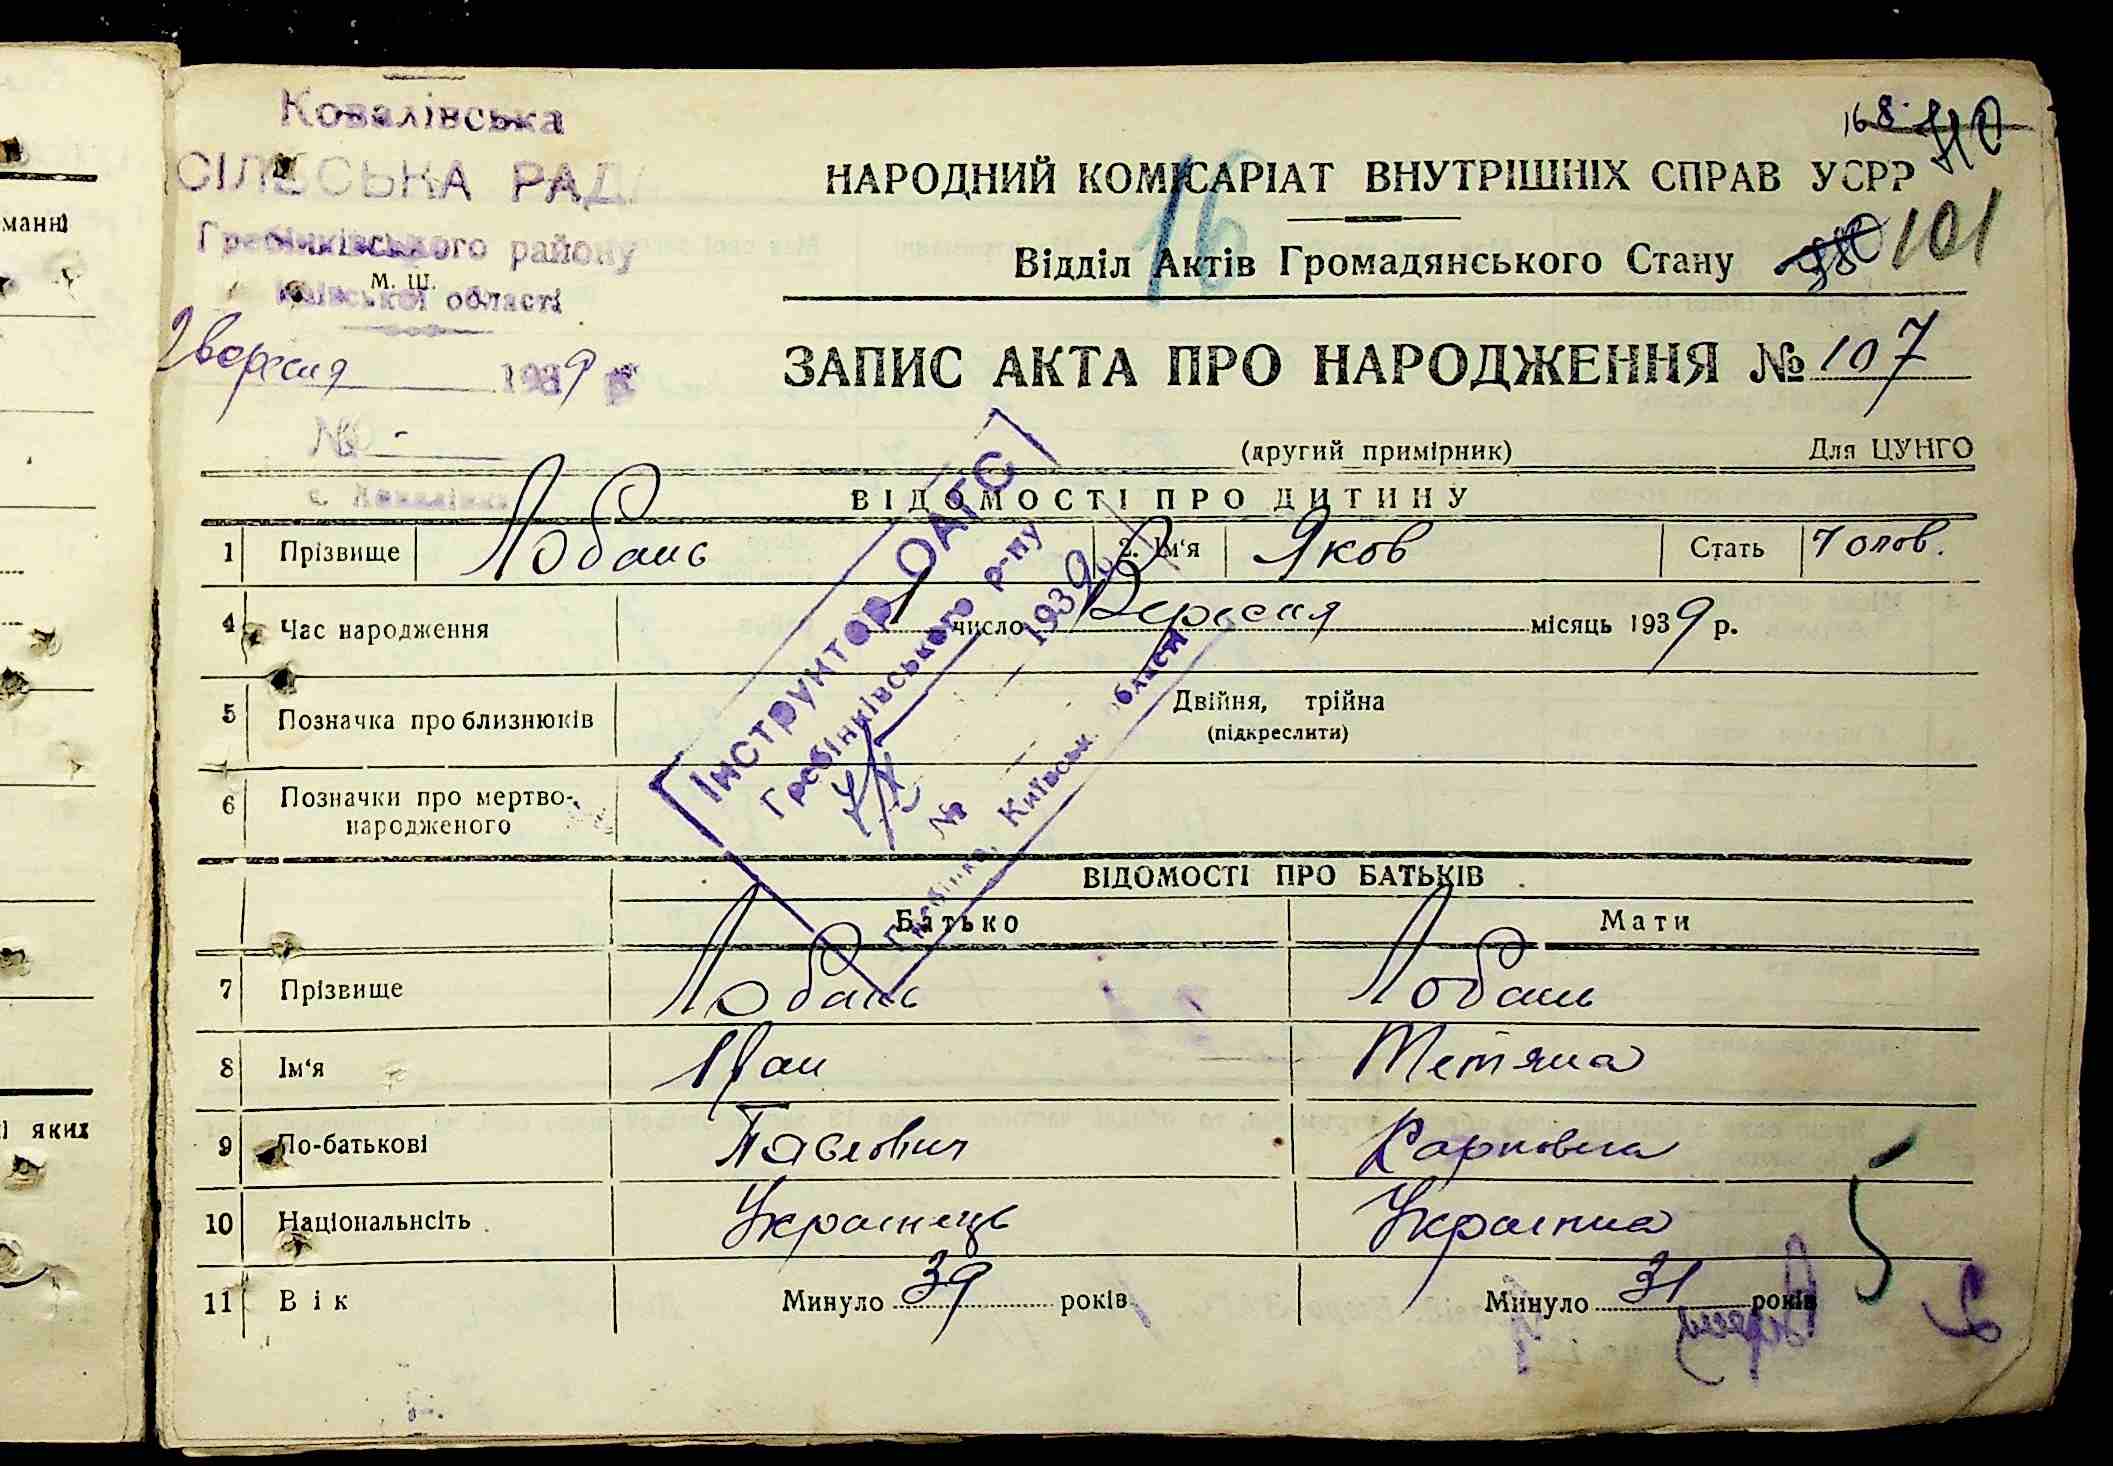 Ковалівська
СІЛЬСЬКА РАДА
Гребінківського району
М. Ш.
Київської області
2 вересня 1939 р.
№ -
с. Ковалівка
168
НАРОДНИЙ КОМІСАРІАТ ВНУТРІШНІХ СПРАВ УСРР
16
Відділ Актів Громадянського Стану
101
ЗАПИС АКТА ПРО НАРОДЖЕННЯ № 107
(другий примірник) Для ЦУНГО
ВІДОМОСТІ ПРО ДИТИНУ
1 Прізвище Лобань 2. Ім'я Яков Стать Чолов.
4 Час народження 1 число Вересня місяць 1939 р.
5 Позначка про близнюків Двійня, трійна
(підкреслити)
6 Позначки про мертво-
народженого
Інструктор ОАГС
Гребінківського р-ну
№ 1939
Гребінка, Київськ. області
ВІДОМОСТІ ПРО БАТЬКІВ
Батько Мати
7 Прізвище Лобань Лобань
8 Ім'я Іван Тетяна
9 По-батькові Павлович Карповна
10 Національнсіть Українець Украінка
11 Вік Минуло 39 років Минуло 31 років
манні
і яких